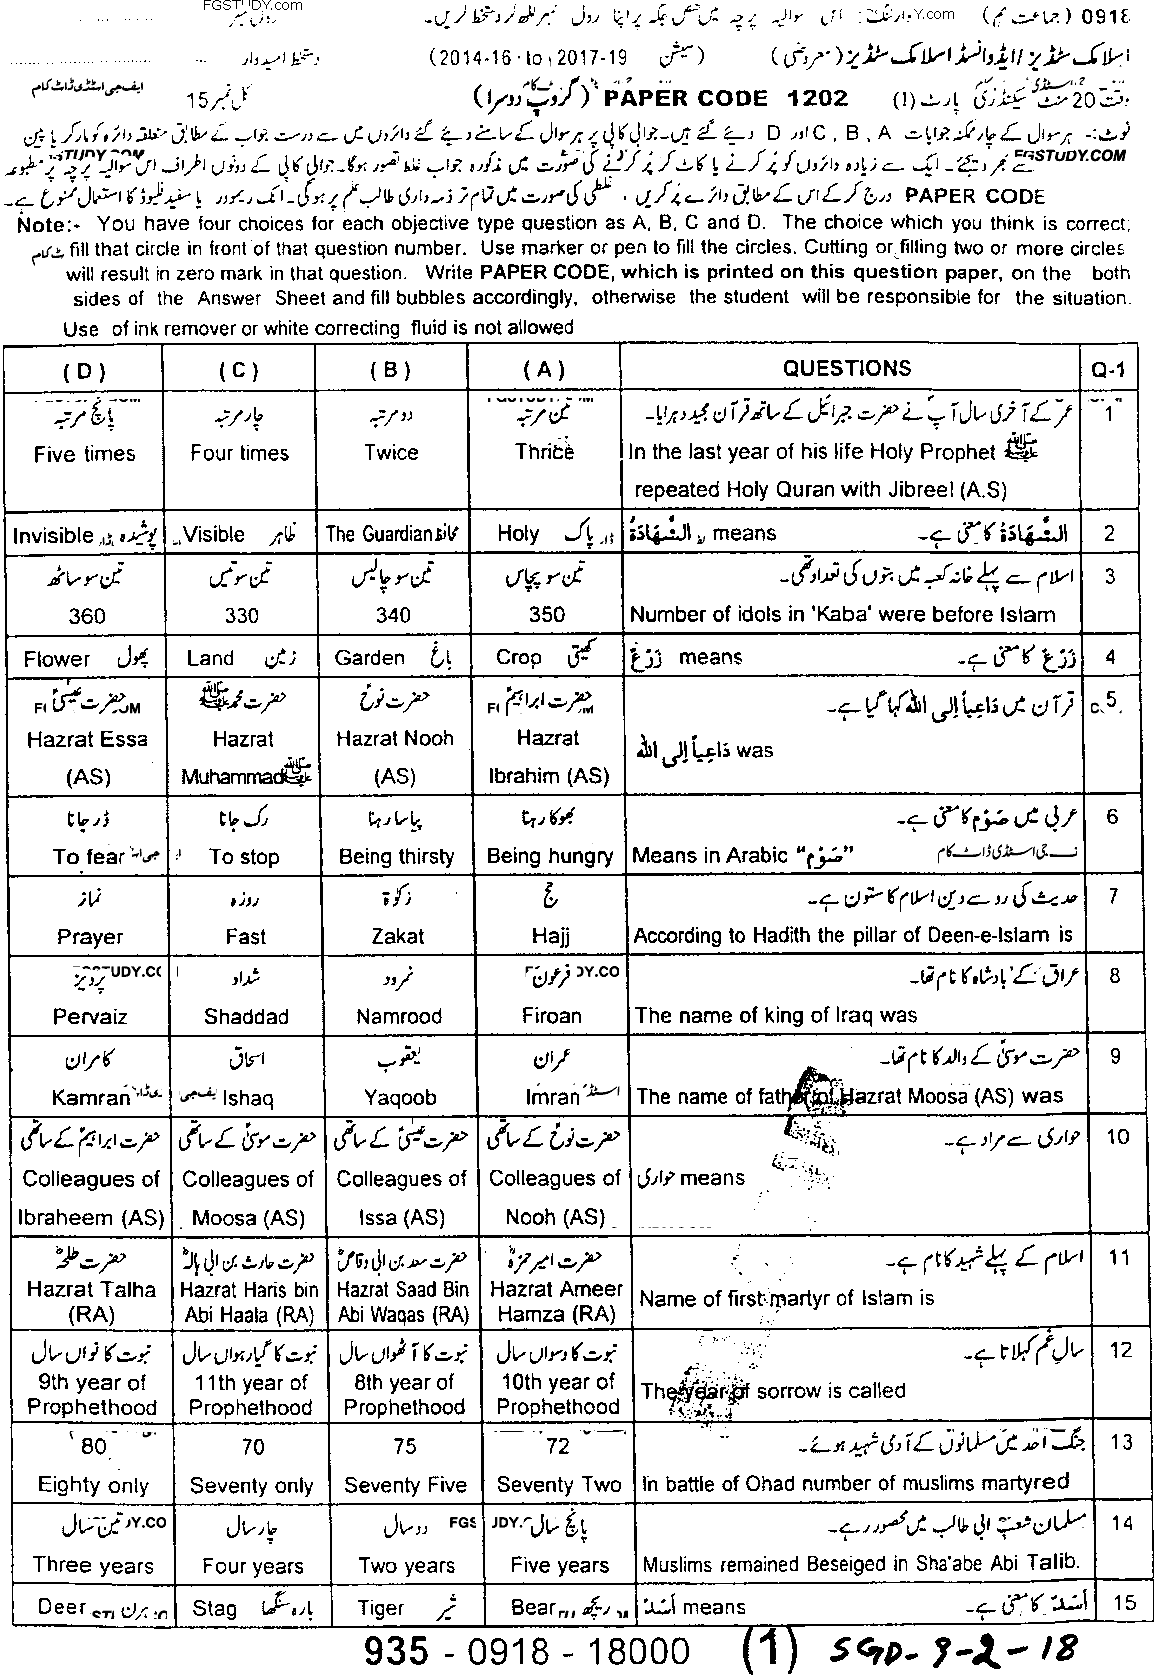 FGSTUDY.com
0918 (جماعت نہم) وارننگ:۔ اس سوالیہ پرچہ میں مختص جگہ پر اپنا رول نمبر لکھ کر دستخط کریں۔ رول نمبر
اسلامک سٹڈیز / ایڈوانسڈ اسلامک سٹڈیز (معروضی) (سیشن 2014-16 to 2017-19) دستخط امیدوار
وقت 20 منٹ سیکنڈری پارٹ (I) PAPER CODE 1202 (گروپ دوسرا) کل نمبر 15
ایف جی اسٹڈی ڈاٹ کام
نوٹ:۔ ہر سوال کے چار ممکنہ جوابات A ، B ، C اور D دیئے گئے ہیں۔ جوابی کاپی پر ہر سوال کے سامنے دیئے گئے دائروں میں سے درست جواب کے مطابق متعلقہ دائرہ کو مارکر یا پین
سے بھر دیجئے۔ ایک سے زیادہ دائروں کو پُر کرنے یا کاٹ کر پُر کرنے کی صورت میں مذکورہ جواب غلط تصور ہوگا۔ جوابی کاپی کے دونوں اطراف اس سوالیہ پرچہ پر مطبوعہ
PAPER CODE درج کر کے اس کے مطابق دائرے پُر کریں ، غلطی کی صورت میں تمام تر ذمہ داری طالب علم پر ہوگی۔ انک ریمور یا سفید فلیوڈ کا استعمال ممنوع ہے۔
Note:- You have four choices for each objective type question as A, B, C and D. The choice which you think is correct;
fill that circle in front of that question number. Use marker or pen to fill the circles. Cutting or filling two or more circles
will result in zero mark in that question. Write PAPER CODE, which is printed on this question paper, on the both
sides of the Answer Sheet and fill bubbles accordingly, otherwise the student will be responsible for the situation.
Use of ink remover or white correcting fluid is not allowed
(D) (C) (B) (A) QUESTIONS Q-1
پانچ مرتبہ چار مرتبہ دو مرتبہ تین مرتبہ عمر کے آخری سال آپؐ نے حضرت جبرائیل کے ساتھ قرآن مجید دہرایا۔ 1
Five times Four times Twice Thrice In the last year of his life Holy Prophet ﷺ
repeated Holy Quran with Jibreel (A.S)
Invisible پوشیدہ Visible ظاہر The Guardian محافظ Holy پاک الشَّهَادَةُ means الشَّهَادَةُ کا معنی ہے۔ 2
تین سو ساٹھ تین سو تیس تین سو چالیس تین سو پچاس اسلام سے پہلے خانہ کعبہ میں بتوں کی تعداد تھی۔ 3
360 330 340 350 Number of idols in 'Kaba' were before Islam
Flower پھول Land زمین Garden باغ Crop کھیتی زَرْعٌ means زَرْعٌ کا معنی ہے۔ 4
حضرت عیسیٰؑ حضرت محمد ﷺ حضرت نوحؑ حضرت ابراہیمؑ قرآن میں دَاعِیاً اِلی اللہ کہا گیا ہے۔ 5
Hazrat Essa Hazrat Hazrat Nooh Hazrat دَاعِیاً اِلی اللہ was
(AS) Muhammad ﷺ (AS) Ibrahim (AS)
ڈر جانا رک جانا پیاسا رہنا بھوکا رہنا عربی میں صَوْم کا معنی ہے۔ 6
To fear To stop Being thirsty Being hungry Means in Arabic "صَوْم"
نماز روزہ زکوٰۃ حج حدیث کی رو سے دین اسلام کا ستون ہے۔ 7
Prayer Fast Zakat Hajj According to Hadith the pillar of Deen-e-Islam is
پرویز شداد نمرود فرعون عراق کے بادشاہ کا نام تھا۔ 8
Pervaiz Shaddad Namrood Firoan The name of king of Iraq was
کامران اسحاق یعقوب عمران حضرت موسیٰؑ کے والد کا نام تھا۔ 9
Kamran Ishaq Yaqoob Imran The name of father of Hazrat Moosa (AS) was
حضرت ابراہیمؑ کے ساتھی حضرت موسیٰؑ کے ساتھی حضرت عیسیٰؑ کے ساتھی حضرت نوحؑ کے ساتھی حواری سے مراد ہے۔ 10
Colleagues of Colleagues of Colleagues of Colleagues of حواری means
Ibraheem (AS) Moosa (AS) Issa (AS) Nooh (AS)
حضرت طلحہؓ حضرت حارث بن ابی ہالہؓ حضرت سعد بن ابی وقاصؓ حضرت امیر حمزہؓ اسلام کے پہلے شہید کا نام ہے۔ 11
Hazrat Talha Hazrat Haris bin Hazrat Saad Bin Hazrat Ameer Name of first martyr of Islam is
(RA) Abi Haala (RA) Abi Waqas (RA) Hamza (RA)
نبوت کا نواں سال نبوت کا گیارہواں سال نبوت کا آٹھواں سال نبوت کا دسواں سال سال غم کہلاتا ہے۔ 12
9th year of 11th year of 8th year of 10th year of The year of sorrow is called
Prophethood Prophethood Prophethood Prophethood
80 70 75 72 جنگ احد میں مسلمانوں کے آدمی شہید ہوئے۔ 13
Eighty only Seventy only Seventy Five Seventy Two In battle of Ohad number of muslims martyred
تین سال چار سال دو سال پانچ سال مسلمان شعب ابی طالب میں محصور رہے۔ 14
Three years Four years Two years Five years Muslims remained Beseiged in Sha'abe Abi Talib.
Deer ہرن Stag بارہ سنگھا Tiger شیر Bear ریچھ أَسَدٌ means أَسَدٌ کا معنی ہے۔ 15
935 - 0918 - 18000 (1) SGD-9-2-18